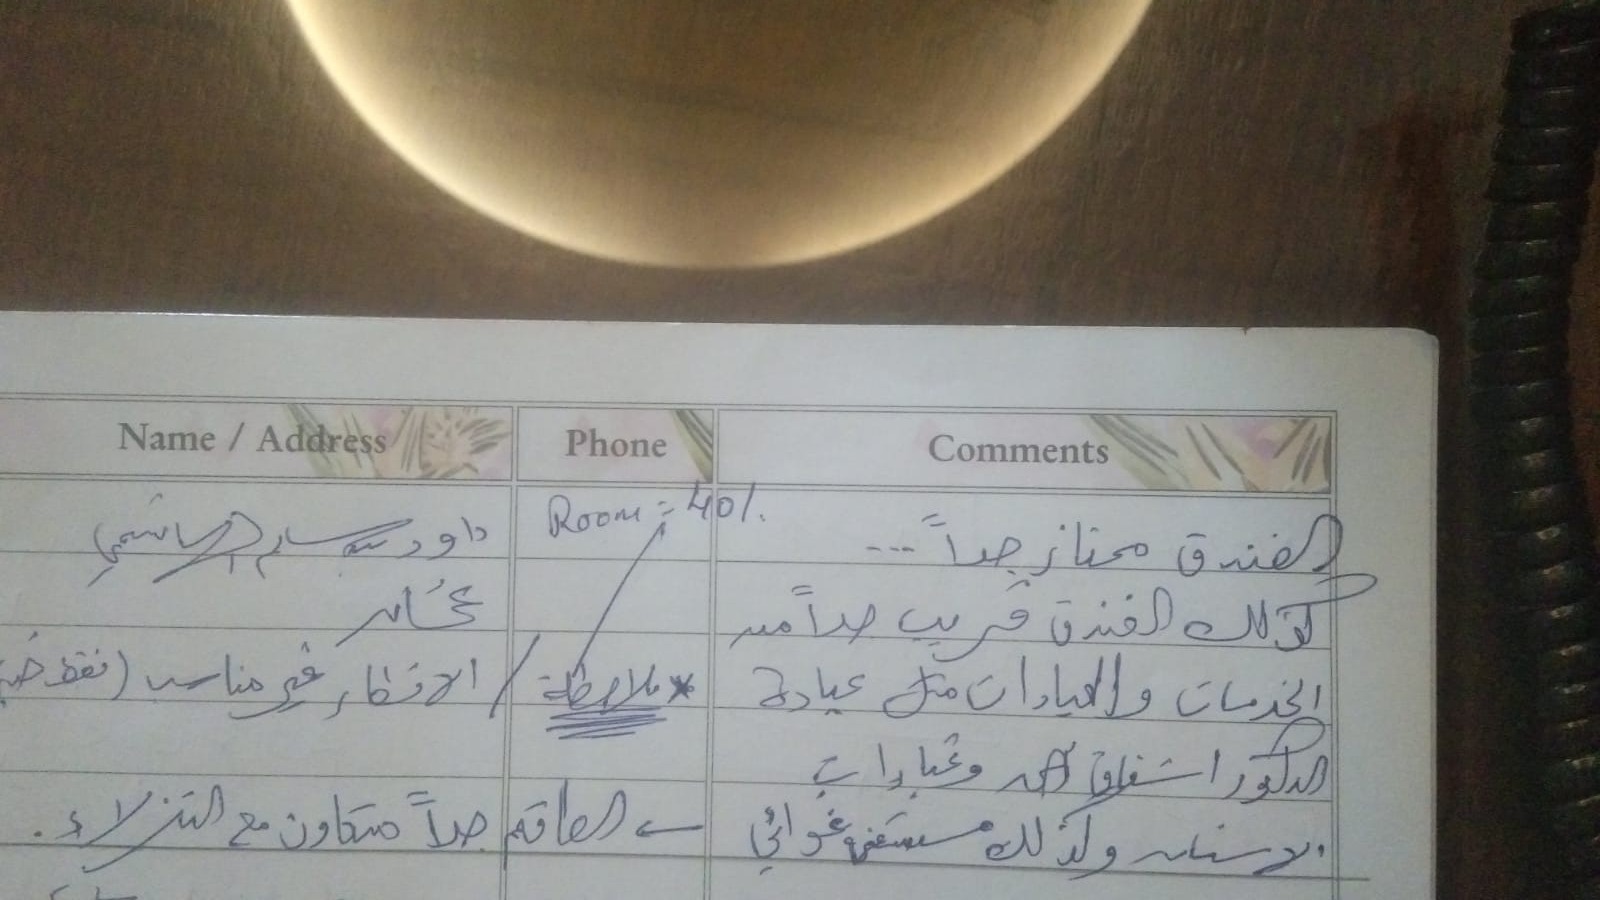 Name / Address Phone Comments
Room = 401.
الفندق ممتاز جداً ...
كذلك الفندق قريب جداً من
الخدمات والعيادات مثل عيادة
الدكتور اشفاق احمد وعيادات
الاسنان وكذلك مستشفى
داود سالم الهاشمي
عُمان
* ملاحظة / الافطار غير مناسب (فقط
← الطاقم جداً متعاون مع النزلاء .